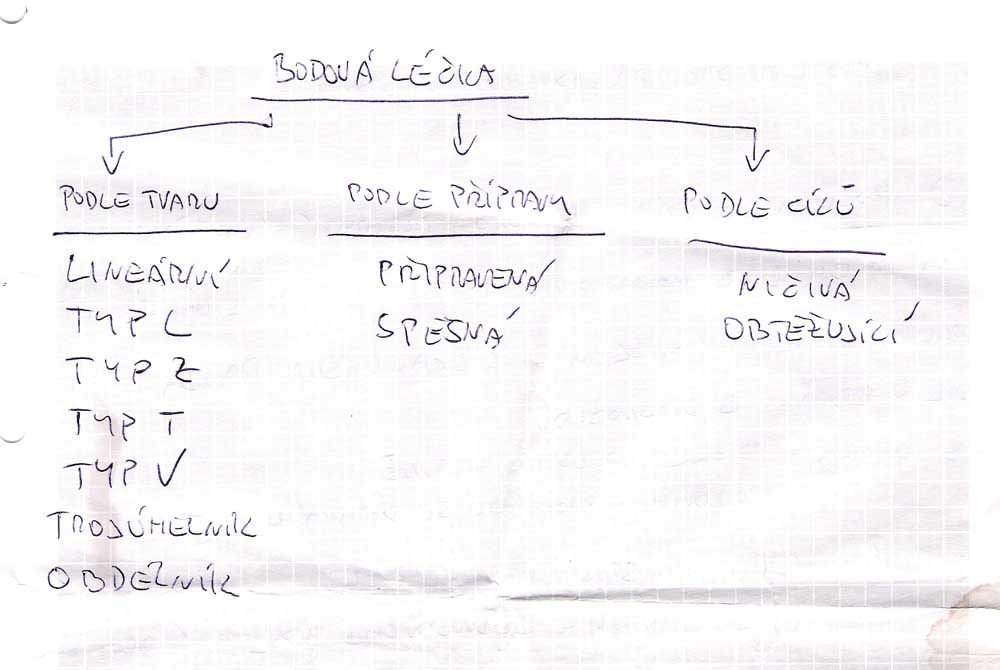 BODOVÁ LÉČKA
PODLE TVARU
LINEÁRNÍ
TYP L
TYP Z
TYP T
TYP V
TROJÚHELNÍK
OBDELNÍK
PODLE PŘÍPRAVY
PŘIPRAVENÁ
SPĚŠNÁ
PODLE CÍLŮ
NIČIVÁ
OBTĚŽUJÍCÍ